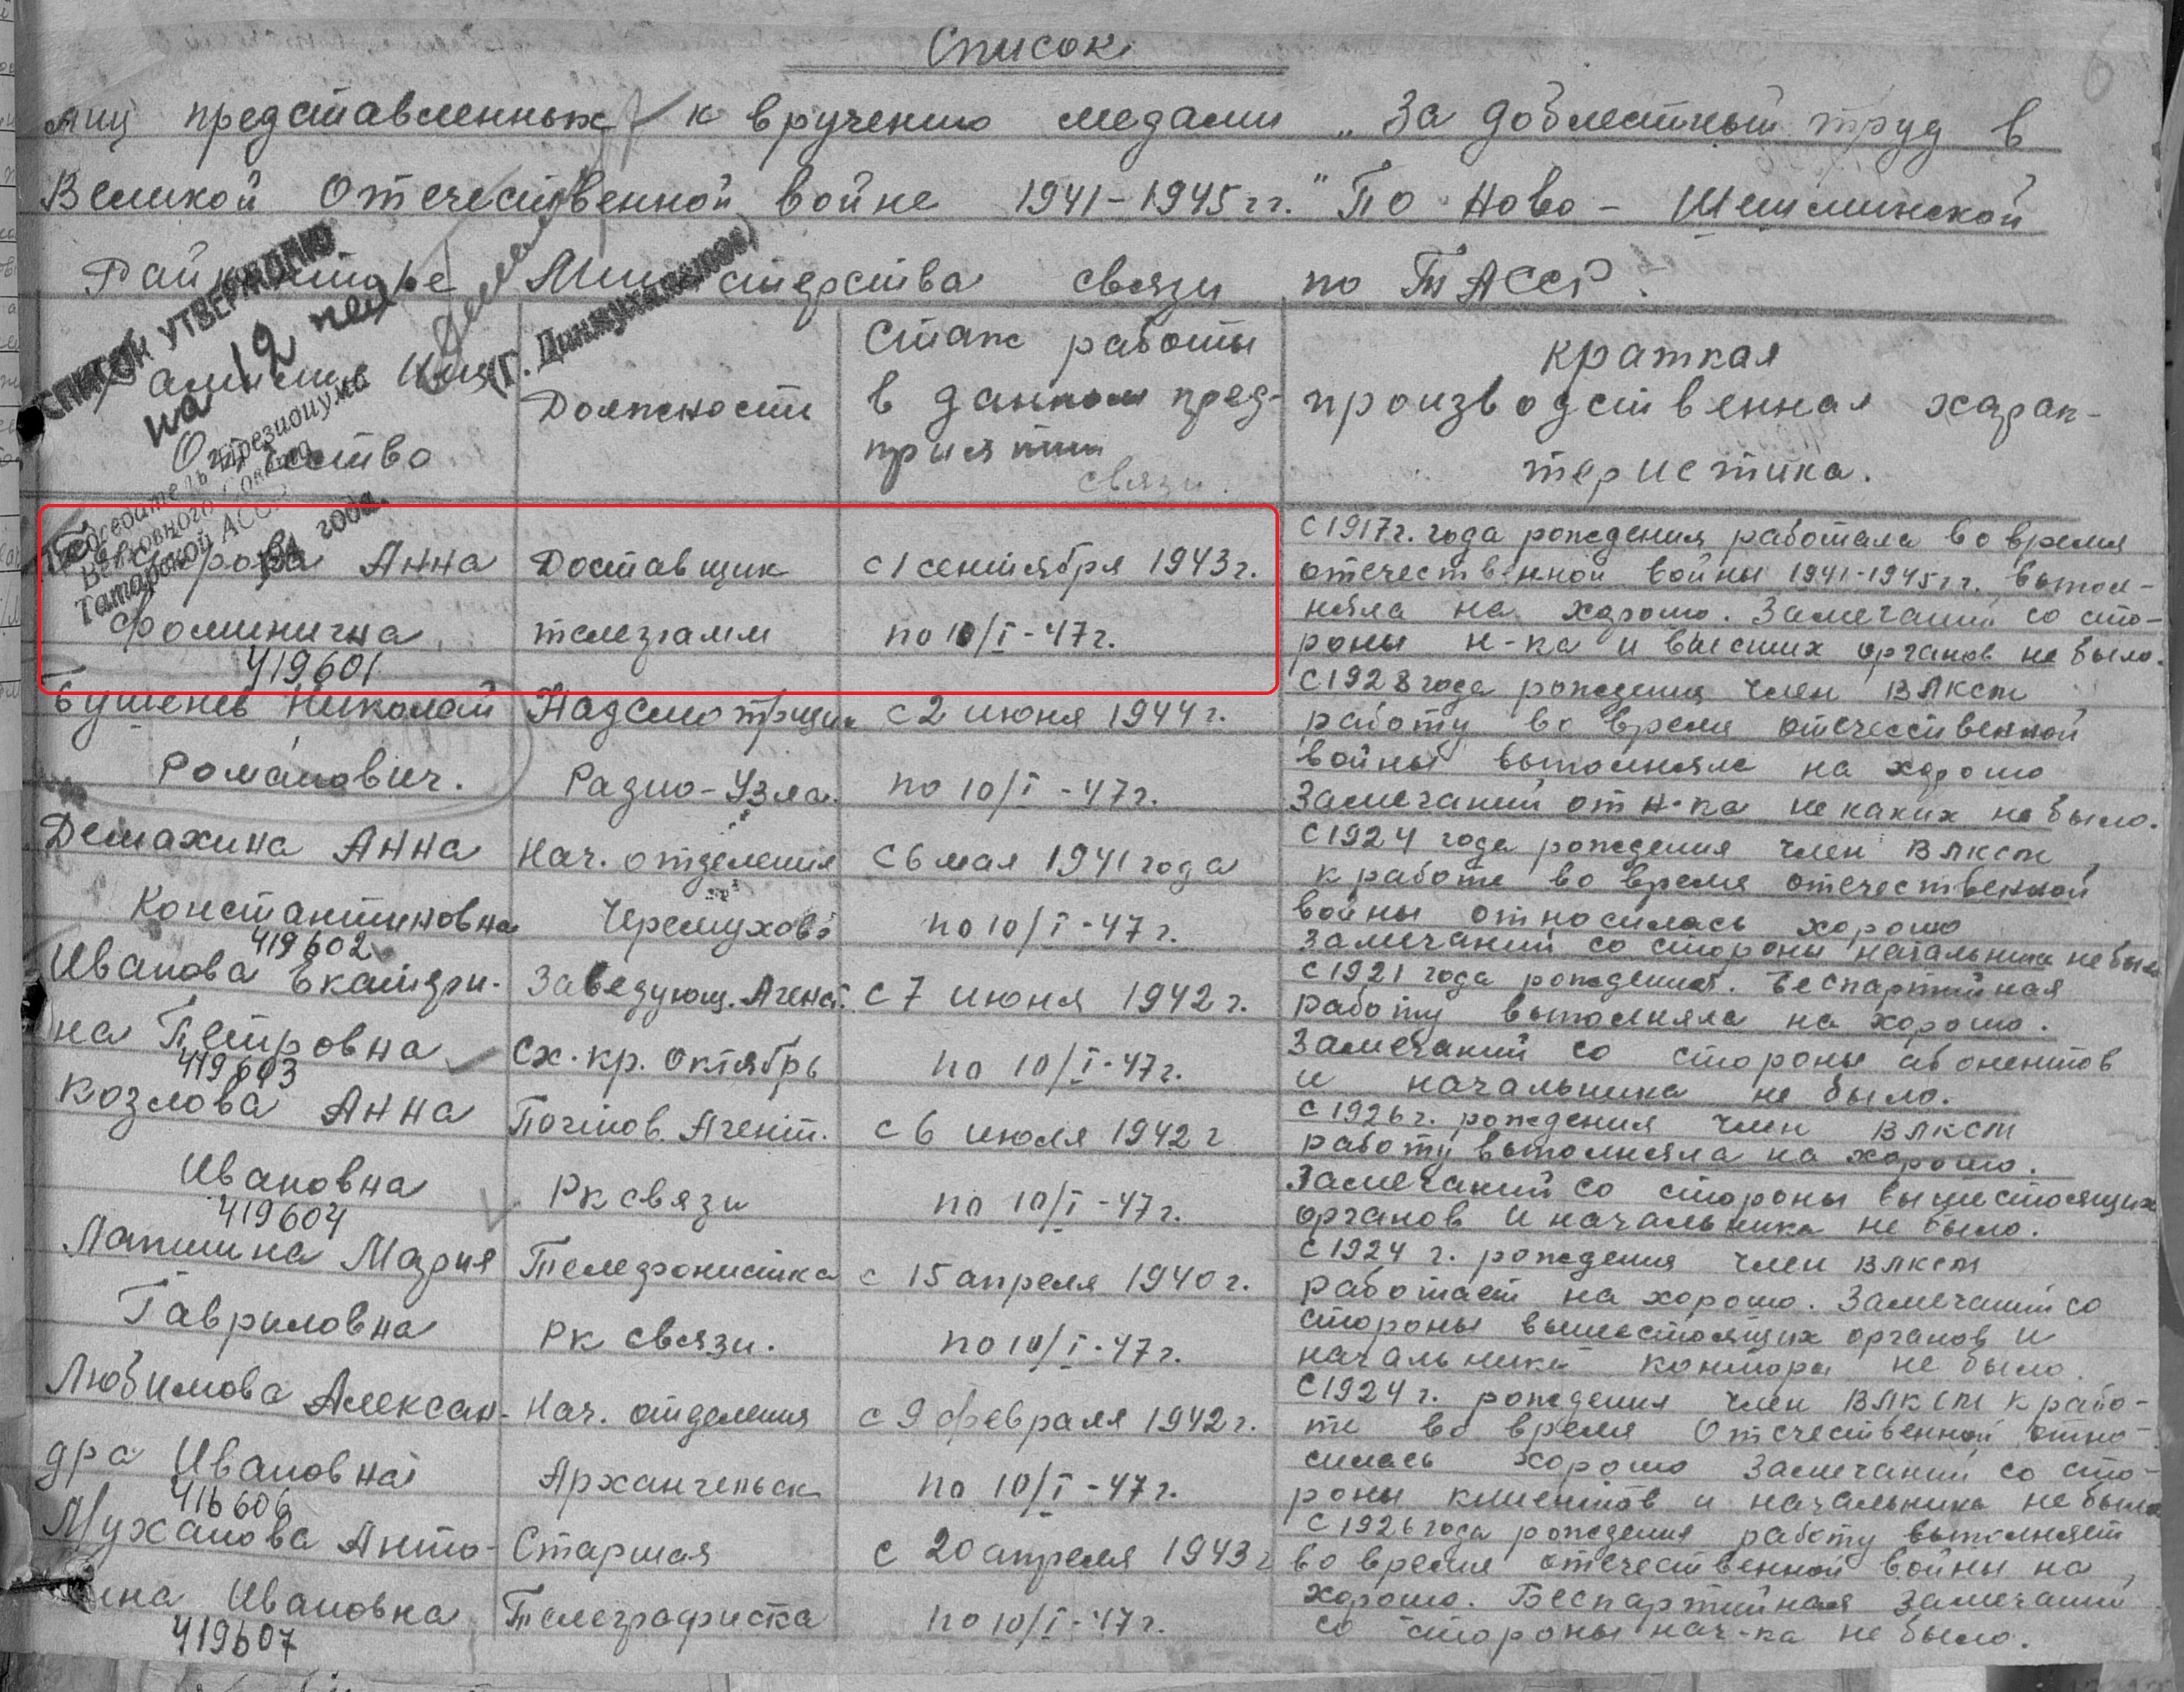 Список
лиц представленных к вручению медали „За доблестный труд в
Великой Отечественной войне 1941-1945 гг." По Ново- Шешминской
Райконторе Министерства связи по ТАССР.
СПИСОК УТВЕРЖДАЮ
на 12 чел
Председатель Президиума
Верховного Совета
Татарской АССР
(Г. Динмухаметов)
194 года.
Фамилия Имя
Отчество
Должности
Стаж работы
в данном пред-
приятии
связи.
Краткая
производственная харак-
теристика.
Анна
Фоминична
419601
Доставщик
телеграмм
с 1 сентября 1943г.
по 10/I-47г.
с 1917г. года рождения работала во время
отечественной войны 1941-1945гг. выпол-
няла на хорошо. Замечаний со сто-
роны н-ка и высших органов не было.
Бушенев Николай
Романович.
Надсмотрщик
Радио-Узла.
с 2 июня 1944г.
по 10/I-47г.
с 1928 года рождения член ВЛКСМ
работу во время отечественной
войны выполняла на хорошо
Замечаний от н-ка не каких не было.
Демахина Анна
Константиновна
419602
Нач. отделения
Черемухово
с 6 мая 1941 года
по 10/I-47г.
с 1924 года рождения член ВЛКСМ,
к работе во время отечественной
войны относилась хорошо
Замечаний со стороны начальника не было
Иванова Екатери-
на Петровна
419603
Заведующ. Агент.
Сх. кр. Октябрь
с 7 июня 1942г.
по 10/I-47г.
с 1921 года рождения. Беспартийная
работу выполняла на хорошо.
Замечаний со стороны абонентов
и начальника не было.
Козлова Анна
Ивановна
419604
Почтов. Агент.
Рк связи
с 6 июля 1942 г
по 10/I-47г.
с 1926г. рождения член ВЛКСМ
работу выполняла на хорошо.
Замечаний со стороны вышестоящих
органов и начальника не было.
Лапшина Мария
Гавриловна
Телефонистка
Рк связи.
с 15 апреля 1940г.
по 10/I-47г.
с 1924 г. рождения член ВЛКСМ
работает на хорошо. Замечаний со
стороны вышестоящих органов и
начальника конторы не было.
Любимова Алексан-
дра Ивановна
416606
Нач. отделения
Архангельск
с 9 февраля 1942г.
по 10/I-47г.
с 1924г. рождения член ВЛКСМ к рабо-
те во время Отечественной отно-
силась хорошо Замечаний со сто-
роны клиентов и начальника не было
Муханова Анто-
нина Ивановна
419607
Старшая
Телеграфистка
с 20 апреля 1943г
по 10/I-47г.
с 1926 года рождения работу выполняет
во время отечественной войны на
хорошо. Беспартийная Замечаний
со стороны нач-ка не было.